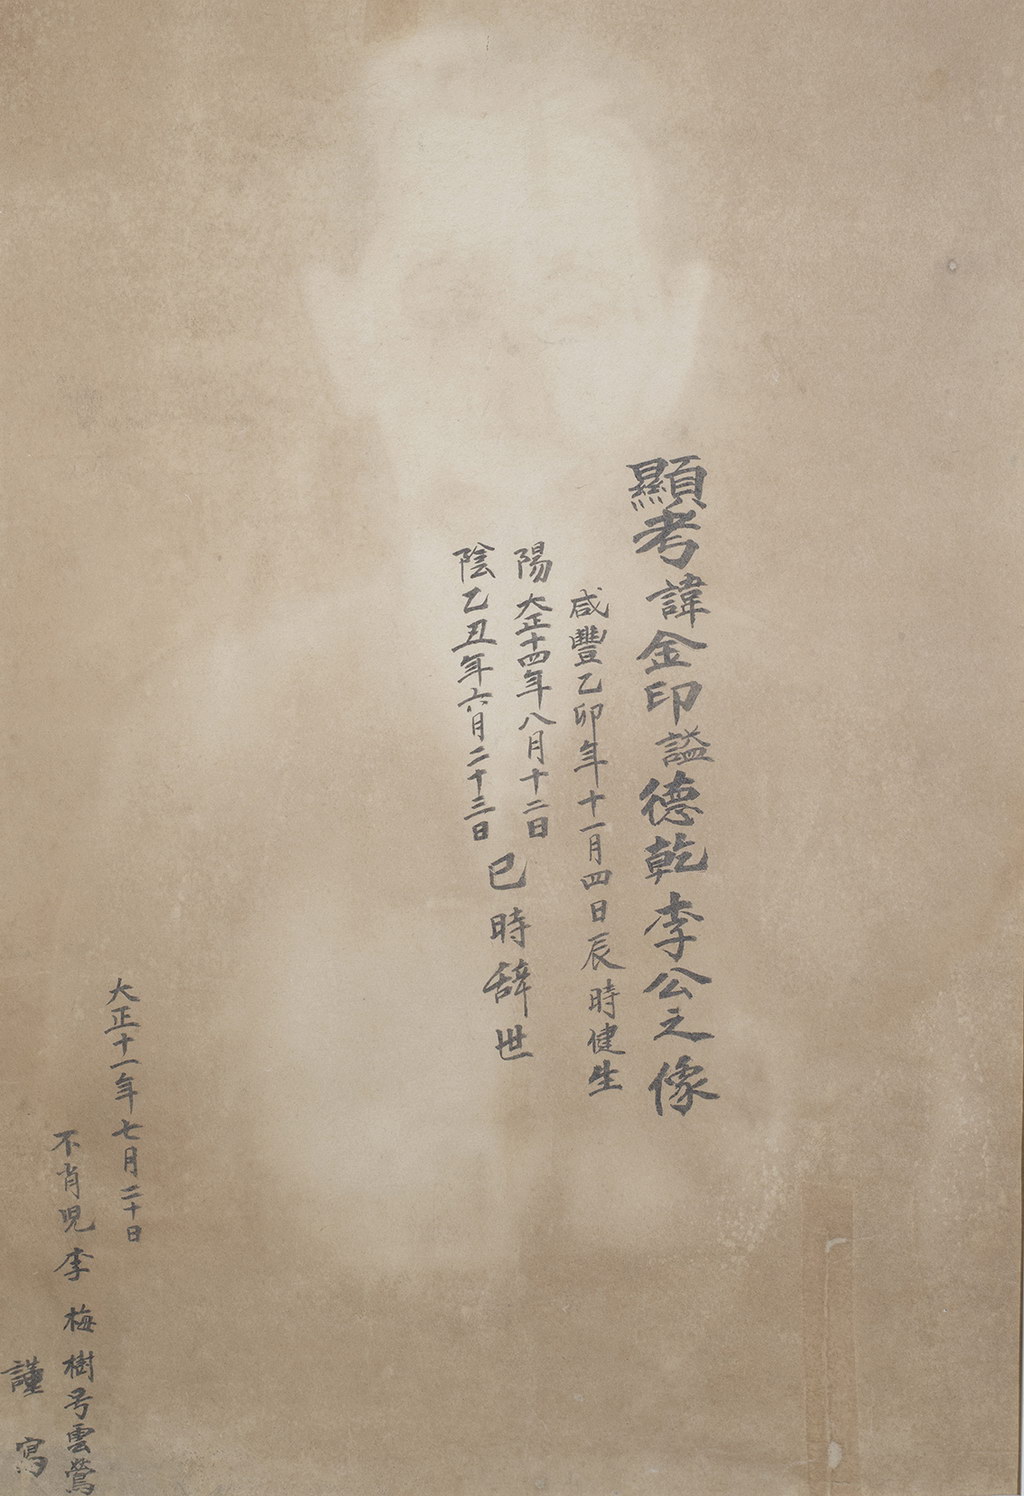 顯考諱金印謚德乾李公之像
咸豐乙卯年十一月四日辰時健生
陽大正十四年八月十二日
陰乙丑年六月二十三日
巳時辞世
大正十一年七月二十日
不肖児李梅樹号雲鶯
謹寫